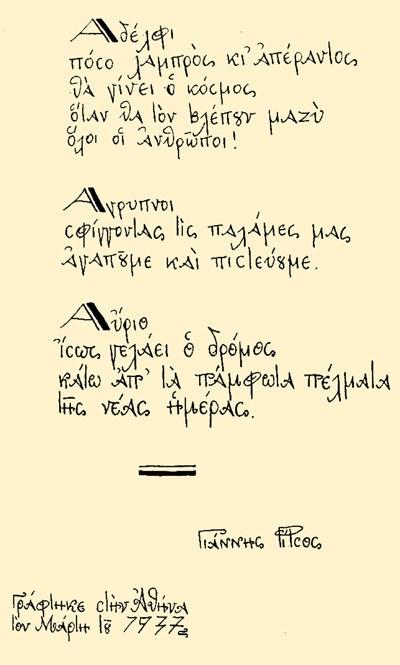 Ἀδέλφι
πόσο λαμπρὸς κι' ἀπέραντος
θὰ γίνει ὁ κόσμος
ὅταν θα τὸν βλέπουν μαζὺ
ὅλοι οἱ ἀνθρῶποι!
Ἄγρυπνοι
σφίγγοντας τὶς παλάμες μας
ἀγαποῦμε καὶ πιστεύουμε.
Αὔριο
ἴσως γελάει ὁ δρόμος
κάτω ἀπ' τὰ πάμφωτα πέλματα
τῆς νέας ἡμέρας.
Γιάννης Ρίτσος
Γράφτηκε στὴν Ἀθήνα
τὸν Μάρτη τοῦ 1937